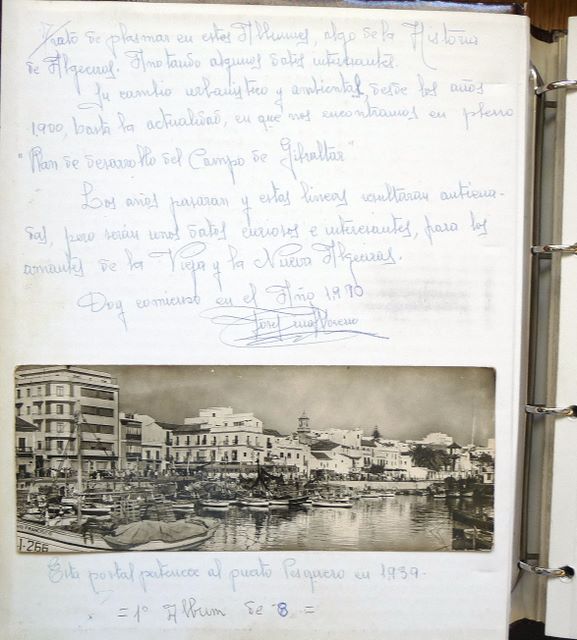 Trato de plasmar en estos Albumes, algo de la Historia
de Algeciras. Anotando algunos datos interesantes.
Su cambio urbanistico y ambiental, desde los años
1900, hasta la actualidad, en que nos encontramos en pleno
"Plan de desarrollo del Campo de Gibraltar"
Los años pasaran y estas lineas resultaran anticua-
das, pero serán unos datos curiosos e interesantes, para los
amantes de la Vieja y la Nueva Algeciras.
Doy comienzo en el Año 1.990
José Moreno
J-266
Esta postal pertenece al puerto Pesquero en 1939.
= 1º Album de 8 =